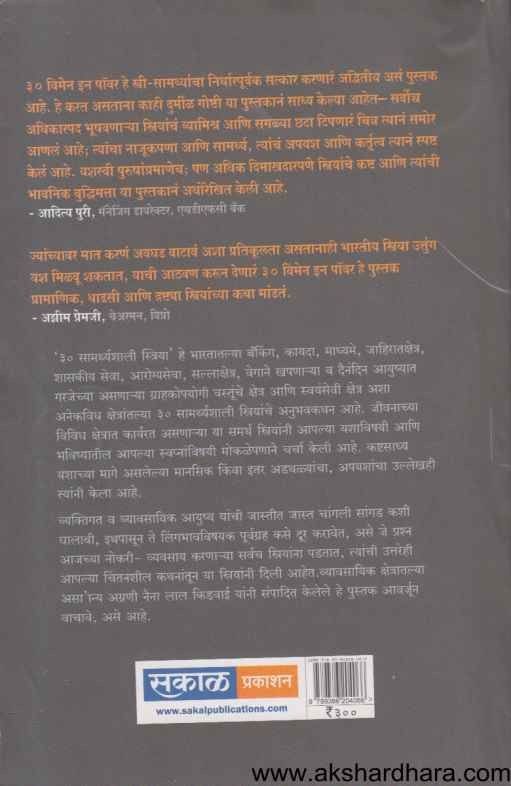 ३० विमेन इन पॉवर हे स्त्री-सामर्थ्याचा निर्धारपूर्वक सत्कार करणारं अद्वितीय असं पुस्तक
आहे. हे करत असताना काही दुर्मीळ गोष्टी या पुस्तकानं साध्य केल्या आहेत– सर्वोच्च
अधिकारपद भूषवणाऱ्या स्त्रियांचं व्यामिश्र आणि सगळ्या छटा टिपणारं चित्र त्यानं समोर
आणलं आहे; त्यांचा नाजूकपणा आणि सामर्थ्य, त्यांचं अपयश आणि कर्तृत्व त्यानं स्पष्ट
केलं आहे. यशस्वी पुरुषांप्रमाणेच; पण अधिक दिमाखदारपणे स्त्रियांचे कष्ट आणि त्यांची
भावनिक बुद्धिमत्ता या पुस्तकानं अधोरेखित केली आहे.
- आदित्य पुरी, मॅनेजिंग डायरेक्टर, एचडीएफसी बँक
ज्यांच्यावर मात करणं अवघड वाटावं अशा प्रतिकूलता असतानाही भारतीय स्त्रिया उत्तुंग
यश मिळवू शकतात, याची आठवण करून देणारं ३० विमेन इन पॉवर हे पुस्तक
प्रामाणिक, धाडसी आणि द्रष्ट्या स्त्रियांच्या कथा मांडतं.
- अझीम प्रेमजी, चेअरमन, विप्रो
'३० सामर्थ्यशाली स्त्रिया' हे भारतातल्या बँकिंग, कायदा, माध्यमे, जाहिरातक्षेत्र,
शासकीय सेवा, आरोग्यसेवा, सल्लाक्षेत्र, वेगाने खपणाऱ्या व दैनंदिन आयुष्यात
गरजेच्या असणाऱ्या ग्राहकोपयोगी वस्तूंचे क्षेत्र आणि स्वयंसेवी क्षेत्र अशा
अनेकविध क्षेत्रांतल्या ३० सामर्थ्यशाली स्त्रियांचे अनुभवकथन आहे. जीवनाच्या
विविध क्षेत्रात कार्यरत असणाऱ्या या समर्थ स्त्रियांनी आपल्या यशाविषयी आणि
भविष्यातील आपल्या स्वप्नांविषयी मोकळेपणाने चर्चा केली आहे. कष्टसाध्य
यशाच्या मागे असलेल्या मानसिक किंवा इतर अडथळ्यांचा, अपयशांचा उल्लेखही
त्यांनी केला आहे.
व्यक्तिगत व व्यावसायिक आयुष्य यांची जास्तीत जास्त चांगली सांगड कशी
घालावी, इथपासून ते लिंगभावविषयक पूर्वग्रह कसे दूर करावेत, असे जे प्रश्न
आजच्या नोकरी- व्यवसाय करणाऱ्या सर्वच स्त्रियांना पडतात, त्यांची उत्तरंही
आपल्या चिंतनशील कथनांतून या स्त्रियांनी दिली आहेत.व्यावसायिक क्षेत्रातल्या
असामान्य अग्रणी नैना लाल किडवाई यांनी संपादित केलेले हे पुस्तक आवर्जून
वाचावे, असे आहे.
सकाळ प्रकाशन
www.sakalpublications.com
₹३००
www.akshardhara.com